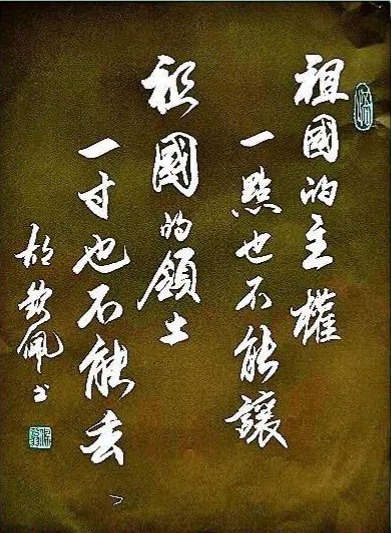 祖國的主權
一點也不能讓
祖國的領土
一寸也不能丢
胡
佩書